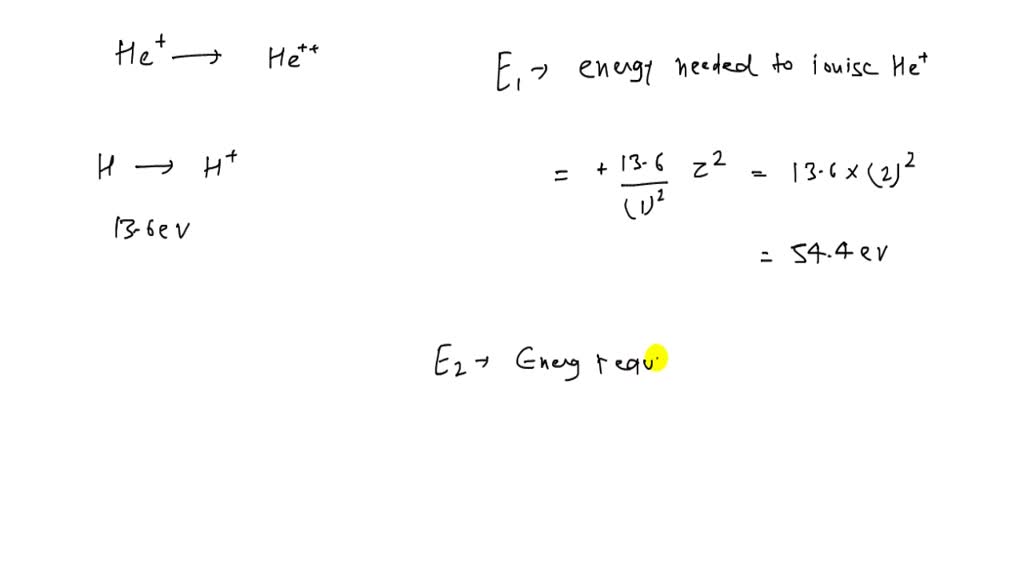 He⁺ → He⁺⁺
E₁ → energy needed to ionise He⁺
H → H⁺
13.6 ev
= + 13.6 / (1)² Z² = 13.6 × (2)²
= 54.4 ev
E₂ → Energ requ